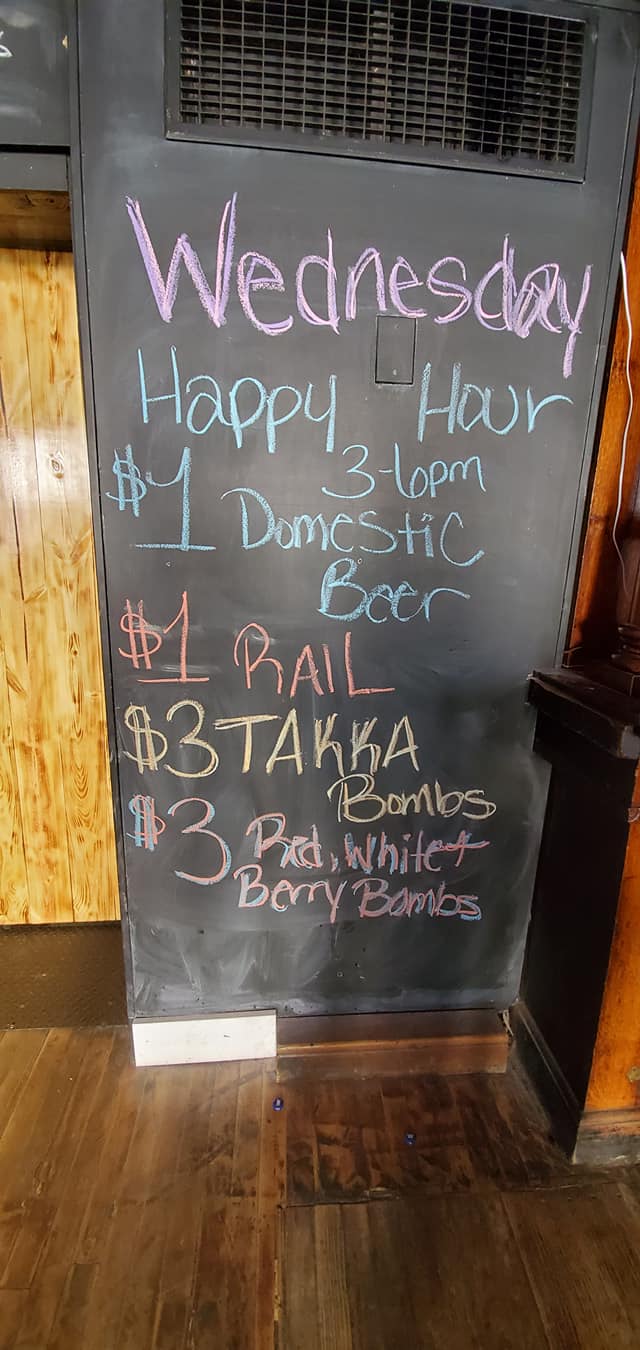 Wednesday
Happy Hour
3-6pm
$1 Domestic
Beer
$1 RAIL
$3 TAKKA
Bombs
$3 Red, White +
Berry Bombs